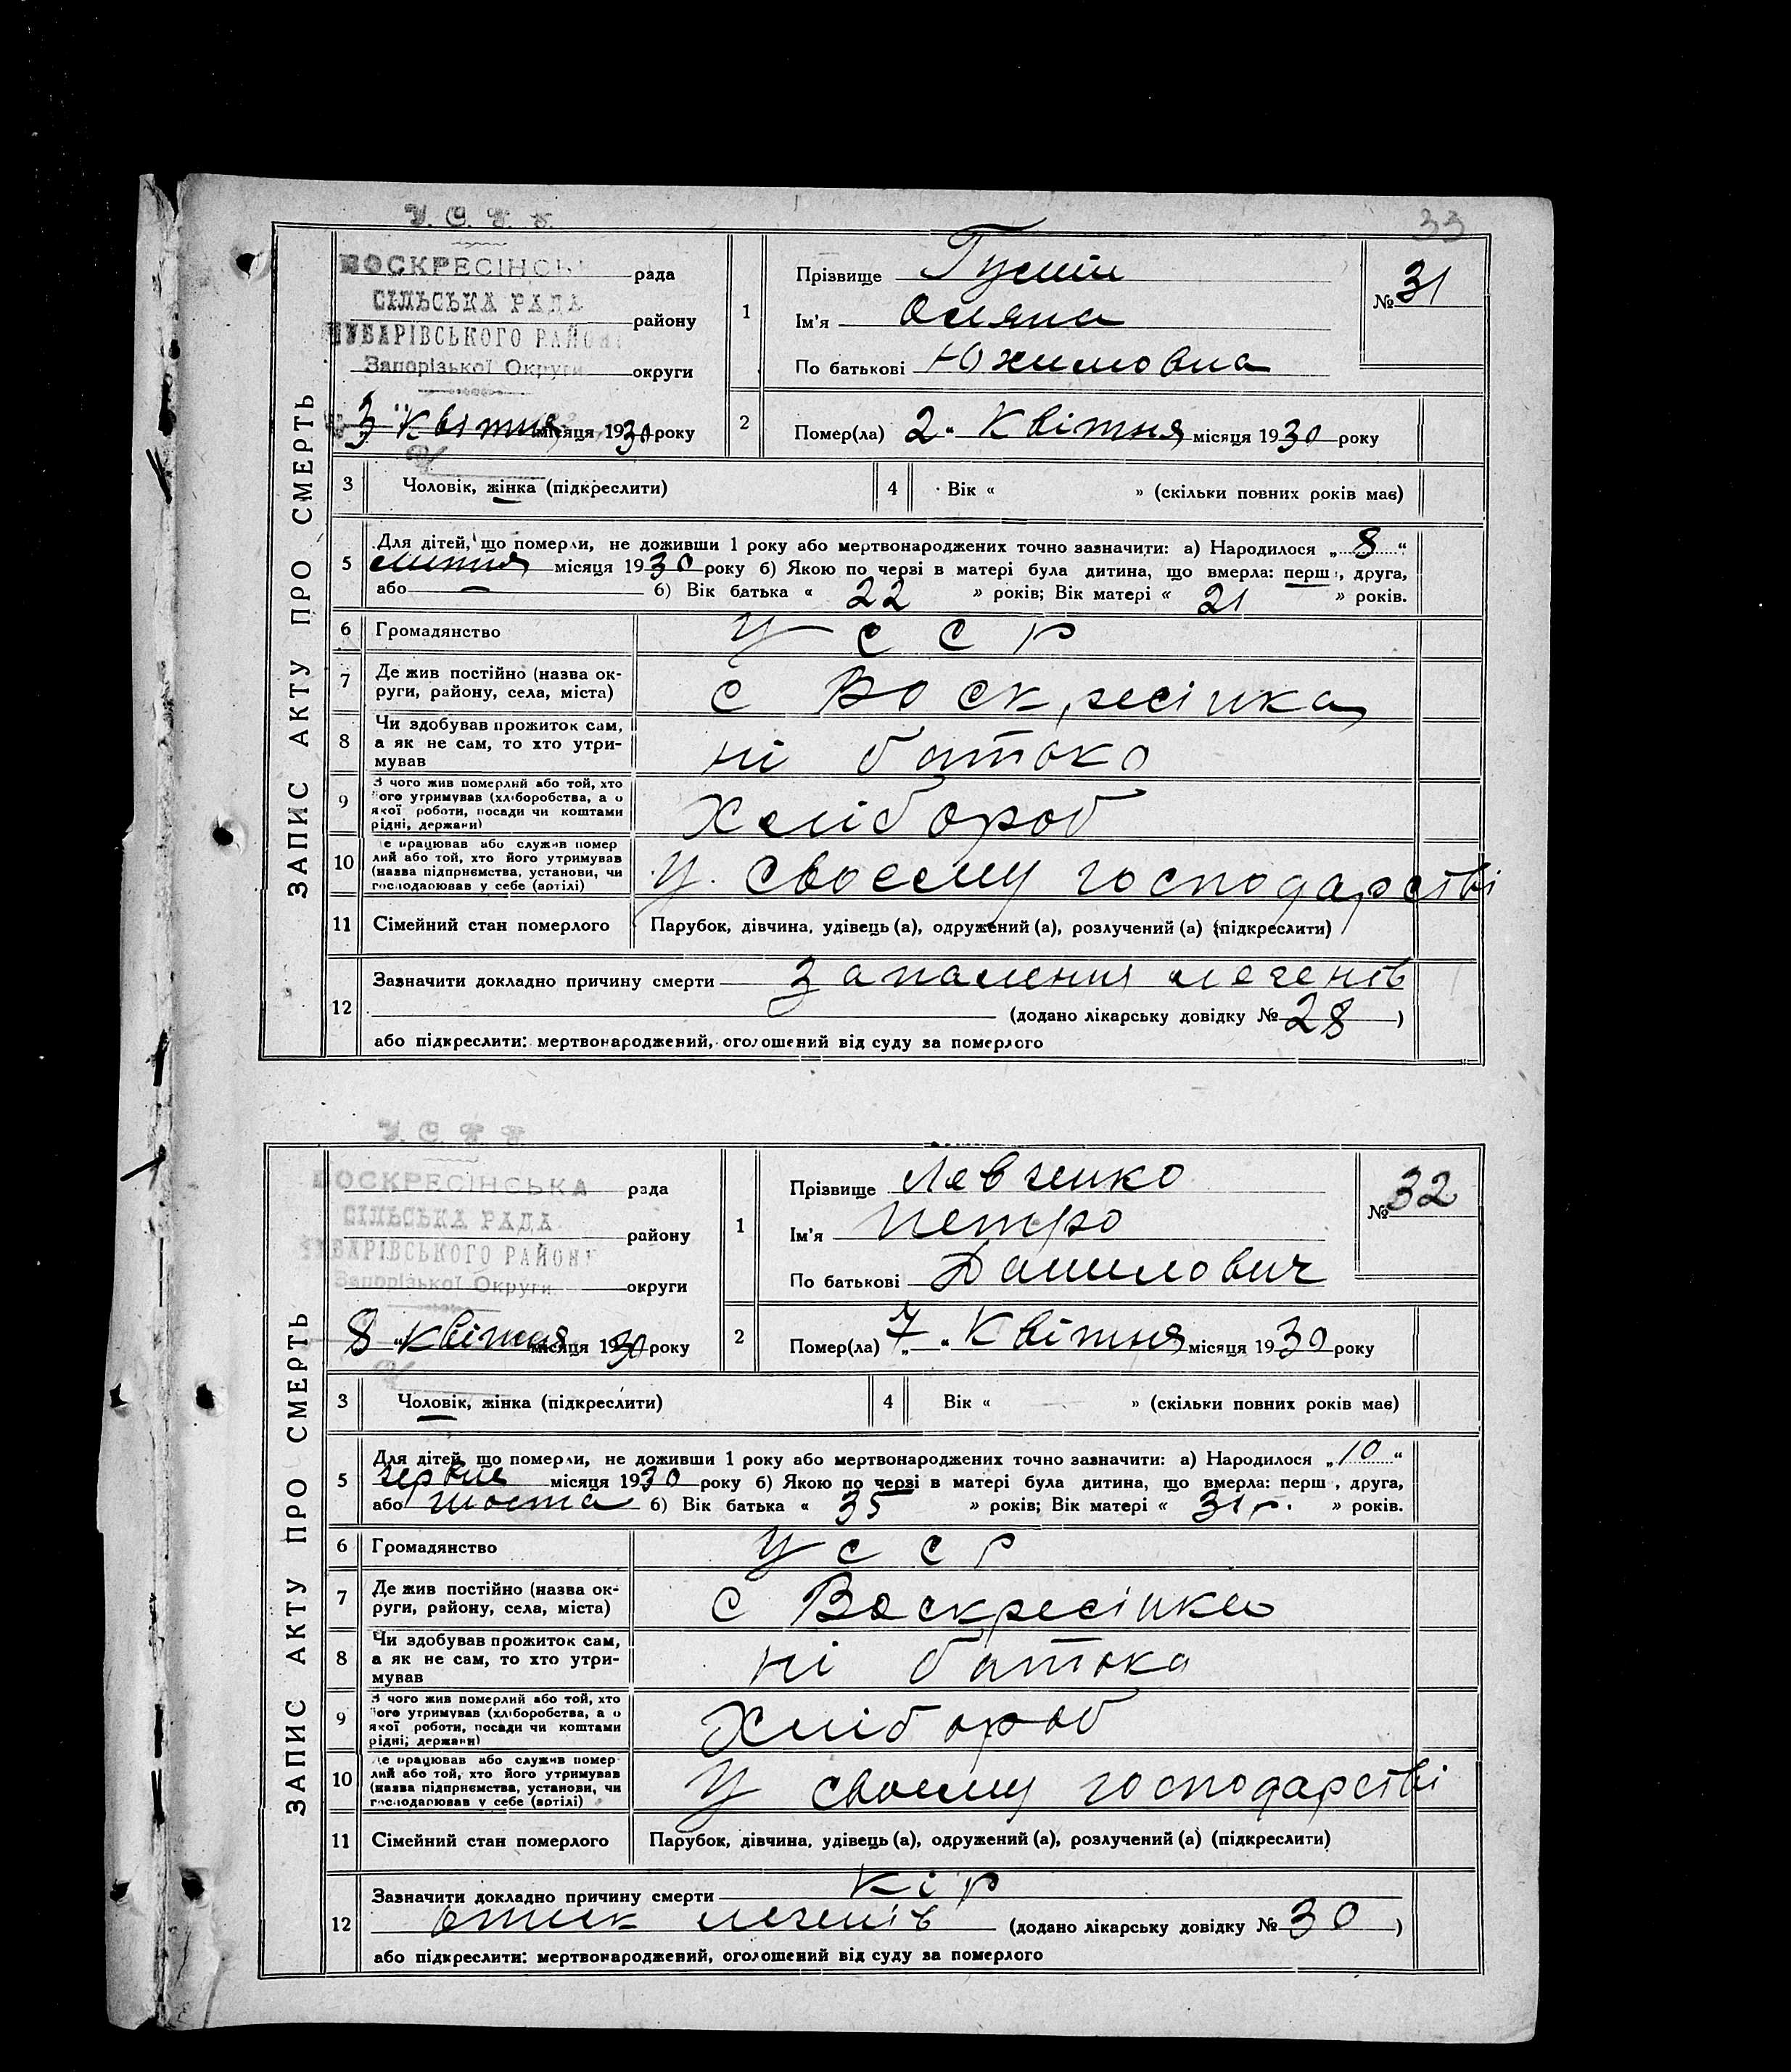 33
У. С. Р. Р.
ВОСКРЕСІНСЬ рада
СІЛЬСЬКА РАДА
ЧУБАРІВСЬКОГО РАЙОНУ району
Запорізької Округи округи
3 "Квітня місяця 1930 року
1 Прізвище
Ім'я Оляна
По батькові Юхимовна
№ 31
2 Помер(ла) 2 " Квітня місяця 1930 року
ЗАПИС АКТУ ПРО СМЕРТЬ
3 Чоловік, жінка (підкреслити) 4 Вік « » (скільки повних років мав)
5 Для дітей, що померли, не доживши 1 року або мертвонароджених точно зазначити: а) Народилося „ 8 “
липня місяця 1930 року б) Якою по черзі в матері була дитина, що вмерла: перш, друга,
або — б) Вік батька « 22 » років; Вік матері « 21 » років.
6 Громадянство У С С Р
7 Де жив постійно (назва ок-
руги, району, села, міста) с Воскресінка
8 Чи здобував прожиток сам,
а як не сам, то хто утри-
мував ні батько
9 З чого жив померлий або той, хто
його утримував (хліборобства, а о
якої роботи, посади чи коштами
рідні, держави) Хлібороб
10 Де працював або служив помер
лий або той, хто його утримував
(назва підприємства, установи, чи
господарював у себе (артілі) У своєму господарстві
11 Сімейний стан померлого Парубок, дівчина, удівець (а), одружений (а), розлучений (а) (підкреслити)
12 Зазначити докладно причину смерти запалення легенів
(додано лікарську довідку № 28 )
або підкреслити: мертвонароджений, оголошений від суду за померлого
У. С. Р. Р.
ВОСКРЕСІНСЬКА рада
СІЛЬСЬКА РАДА
ЧУБАРІВСЬКОГО РАЙОНУ району
Запорізької Округи округи
8 "Квітня місяця 1930 року
1 Прізвище Левченко
Ім'я Петро
По батькові Данилович
№ 32
2 Помер(ла) „ 7 “ Квітня місяця 1930 року
ЗАПИС АКТУ ПРО СМЕРТЬ
3 Чоловік, жінка (підкреслити) 4 Вік « » (скільки повних років мав)
5 Для дітей, що померли, не доживши 1 року або мертвонароджених точно зазначити: а) Народилося „ 10 “
червня місяця 1930 року б) Якою по черзі в матері була дитина, що вмерла: перш, друга,
або шоста б) Вік батька « 35 » років; Вік матері « 31 р. » років.
6 Громадянство У С С Р
7 Де жив постійно (назва ок-
руги, району, села, міста) с Воскресінка
8 Чи здобував прожиток сам,
а як не сам, то хто утри-
мував ні батока
9 З чого жив померлий або той, хто
його утримував (хліборобства, а о
якої роботи, посади чи коштами
рідні, держави) Хлібороб
10 Де працював або служив помер
лий або той, хто його утримував
(назва підприємства, установи, чи
господарював у себе (артілі) У своєму господарстві
11 Сімейний стан померлого Парубок, дівчина, удівець (а), одружений (а), розлучений (а) (підкреслити)
12 Зазначити докладно причину смерти Кір
отик легенів (додано лікарську довідку № 30 )
або підкреслити: мертвонароджений, оголошений від суду за померлого